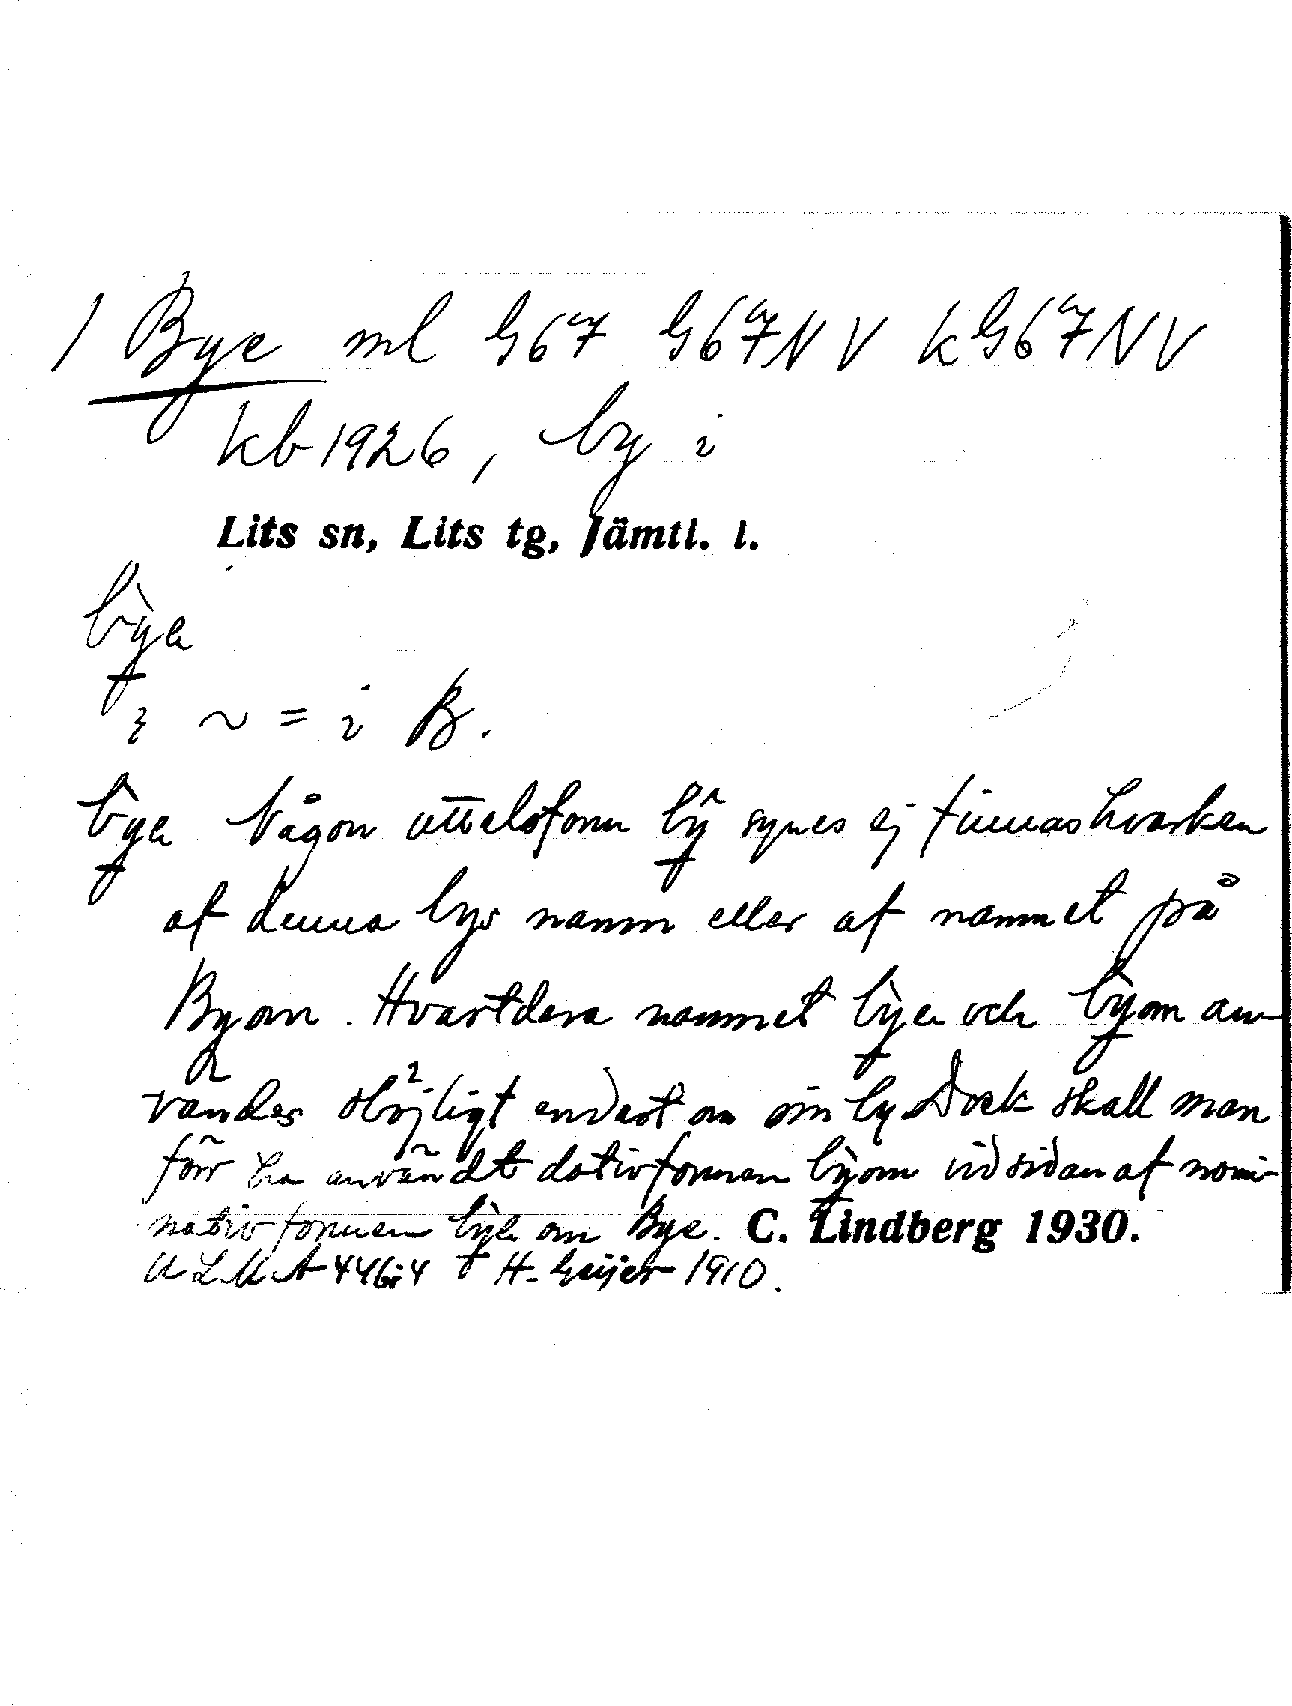 1 Bye ml G67 G67NV kG67NV
kb 1926, by i
Lits sn, Lits tg, Jämtl. l.
bỳe
i ~ = i B.
bỳe Någon uttalsform bŷ synes ej finnas hvarken
af denna bys namn eller af namnet på
Byom. Hvartdera namnet bỳe och bỳom an-
vändes oböjligt endast om sin by. Dock skall man
förr ha användt dativformen bỳom vid sidan af nomi-
nativformen bỳe om Bye. C. Lindberg 1930.
ULMA 446:4 H. Geijer 1910.